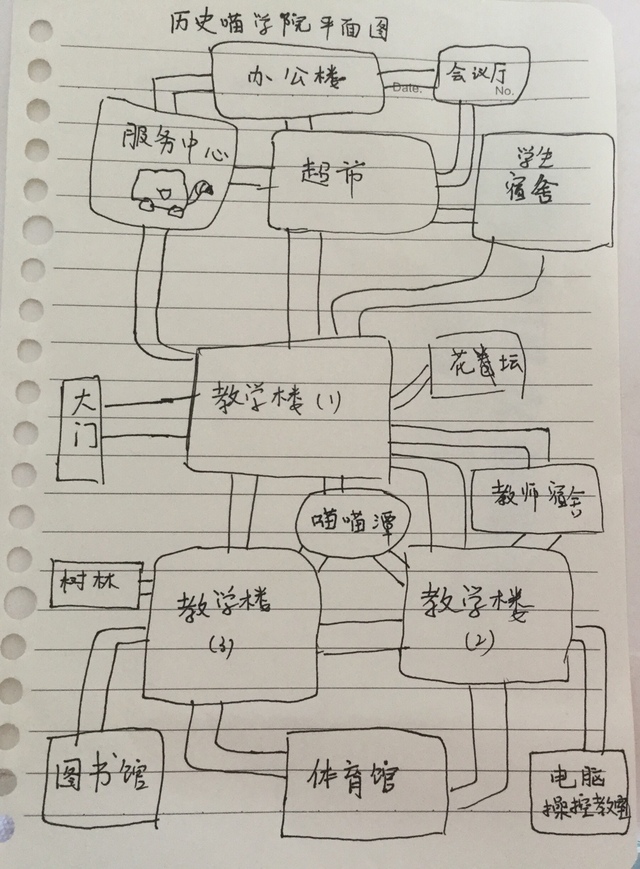 历史喵学院平面图
办公楼
会议厅
Date.
No.
服务中心
超市
学生
宿舍
大
门
教学楼(1)
花卷坛
教师宿舍
喵喵潭
树林
教学楼
(3)
教学楼
(2)
图书馆
体育馆
电脑
操控教室